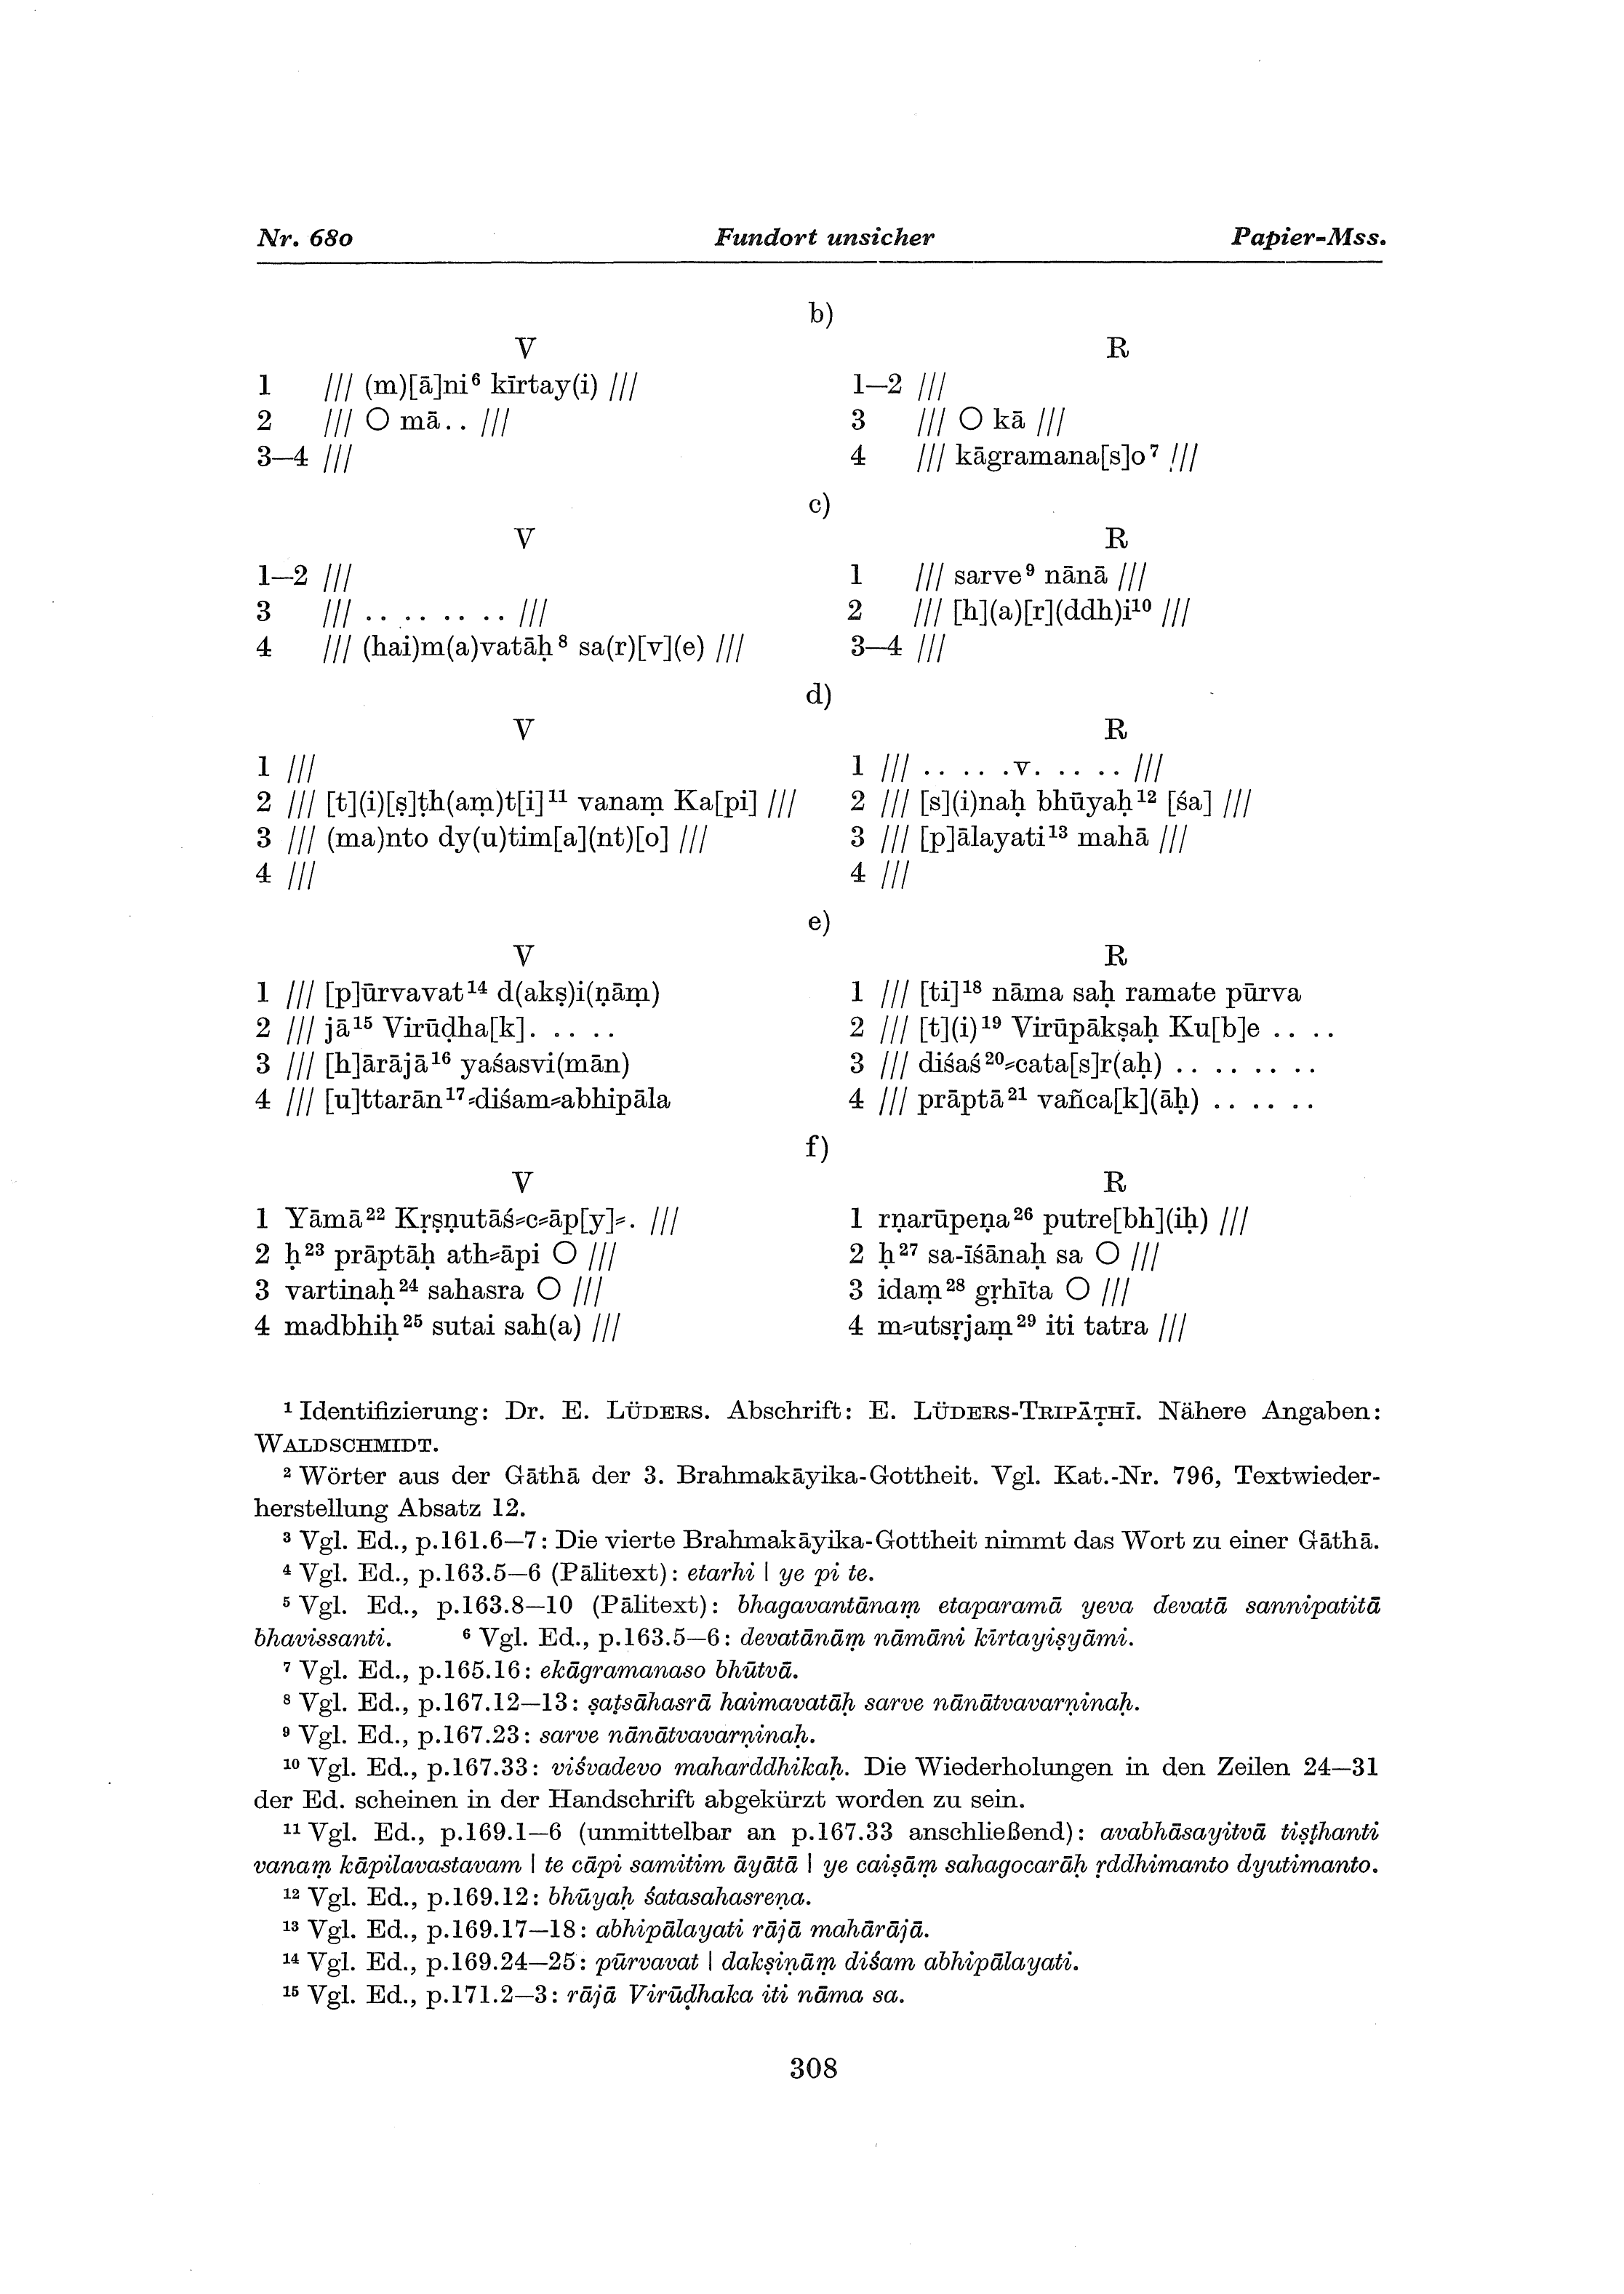 Nr. 680 Fundort unsicher Papier-Mss.
b)
V
1 /// (m)[ā]ni⁶ kīrtay(i) ///
2 /// ○ mā. . ///
3—4 ///
R
1—2 ///
3 /// ○ kā ///
4 /// kāgramana[s]o⁷ ///
c)
V
1—2 ///
3 /// . . . . . . . . ///
4 /// (hai)m(a)vatāḥ⁸ sa(r)[v](e) ///
R
1 /// sarve⁹ nānā ///
2 /// [h](a)[r](ddh)i¹⁰ ///
3—4 ///
d)
V
1 ///
2 /// [t](i)[ṣ]ṭh(aṃ)t[i]¹¹ vanaṃ Ka[pi] ///
3 /// (ma)nto dy(u)tim[a](nt)[o] ///
4 ///
R
1 /// . . . . .v. . . . . ///
2 /// [s](i)naḥ bhūyaḥ¹² [śa] ///
3 /// [p]ālayati¹³ mahā ///
4 ///
e)
V
1 /// [p]ūrvavat¹⁴ d(akṣ)i(ṇāṃ)
2 /// jā¹⁵ Virūḍha[k]. . . . .
3 /// [h]ārājā¹⁶ yaśasvi(mān)
4 /// [u]ttarān¹⁷⸗diśam⸗abhipāla
R
1 /// [ti]¹⁸ nāma saḥ ramate pūrva
2 /// [t](i)¹⁹ Virūpākṣaḥ Ku[b]e . . . .
3 /// diśaś²⁰⸗cata[s]r(aḥ) . . . . . . . .
4 /// prāptā²¹ vañca[k](āḥ) . . . . . .
f)
V
1 Yāmā²² Kṛṣṇutāś⸗c⸗āp[y]⸗. ///
2 ḥ²³ prāptāḥ ath⸗āpi ○ ///
3 vartinaḥ²⁴ sahasra ○ ///
4 madbhiḥ²⁵ sutai sah(a) ///
R
1 rṇarūpeṇa²⁶ putre[bh](iḥ) ///
2 ḥ²⁷ sa-īśānaḥ sa ○ ///
3 idaṃ²⁸ gṛhīta ○ ///
4 m⸗utsṛjaṃ²⁹ iti tatra ///
¹ Identifizierung: Dr. E. LÜDERS. Abschrift: E. LÜDERS-TRIPĀṬHĪ. Nähere Angaben:
WALDSCHMIDT.
² Wörter aus der Gāthā der 3. Brahmakāyika-Gottheit. Vgl. Kat.-Nr. 796, Textwieder-
herstellung Absatz 12.
³ Vgl. Ed., p.161.6—7: Die vierte Brahmakāyika-Gottheit nimmt das Wort zu einer Gāthā.
⁴ Vgl. Ed., p.163.5—6 (Pālitext): etarhi | ye pi te.
⁵ Vgl. Ed., p.163.8—10 (Pālitext): bhagavantānaṃ etaparamā yeva devatā sannipatitā
bhavissanti. ⁶ Vgl. Ed., p.163.5—6: devatānāṃ nāmāni kīrtayiṣyāmi.
⁷ Vgl. Ed., p.165.16: ekāgramanaso bhūtvā.
⁸ Vgl. Ed., p.167.12—13: ṣaṭsāhasrā haimavatāḥ sarve nānātvavarṇinaḥ.
⁹ Vgl. Ed., p.167.23: sarve nānātvavarṇinaḥ.
¹⁰ Vgl. Ed., p.167.33: viśvadevo maharddhikaḥ. Die Wiederholungen in den Zeilen 24—31
der Ed. scheinen in der Handschrift abgekürzt worden zu sein.
¹¹ Vgl. Ed., p.169.1—6 (unmittelbar an p.167.33 anschließend): avabhāsayitvā tiṣṭhanti
vanaṃ kāpilavastavam | te cāpi samitim āyātā | ye caiṣāṃ sahagocarāḥ ṛddhimanto dyutimanto.
¹² Vgl. Ed., p.169.12: bhūyaḥ śatasahasreṇa.
¹³ Vgl. Ed., p.169.17—18: abhipālayati rājā mahārājā.
¹⁴ Vgl. Ed., p.169.24—25: pūrvavat | dakṣiṇāṃ diśam abhipālayati.
¹⁵ Vgl. Ed., p.171.2—3: rājā Virūḍhaka iti nāma sa.
308